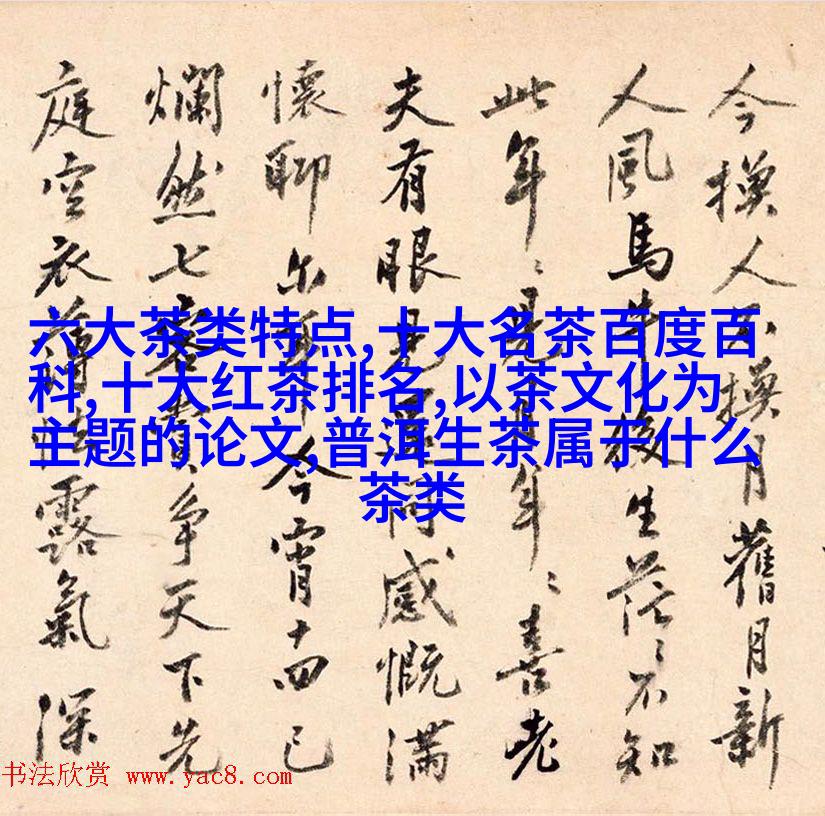 今換人不換月舊月新
人風馬牛生茫〻不知
此年〻是年〻喜老
夫有眼見同感慨滿
懷聊尔今宵十四已
爛然七客賞爭天下先
庭空衣薄露氣深
六大茶类特点,十大名茶百度百
科,十大红茶排名,以茶文化为
主题的论文,普洱生茶属于什么
茶类
书法欣赏 www.yac8.com